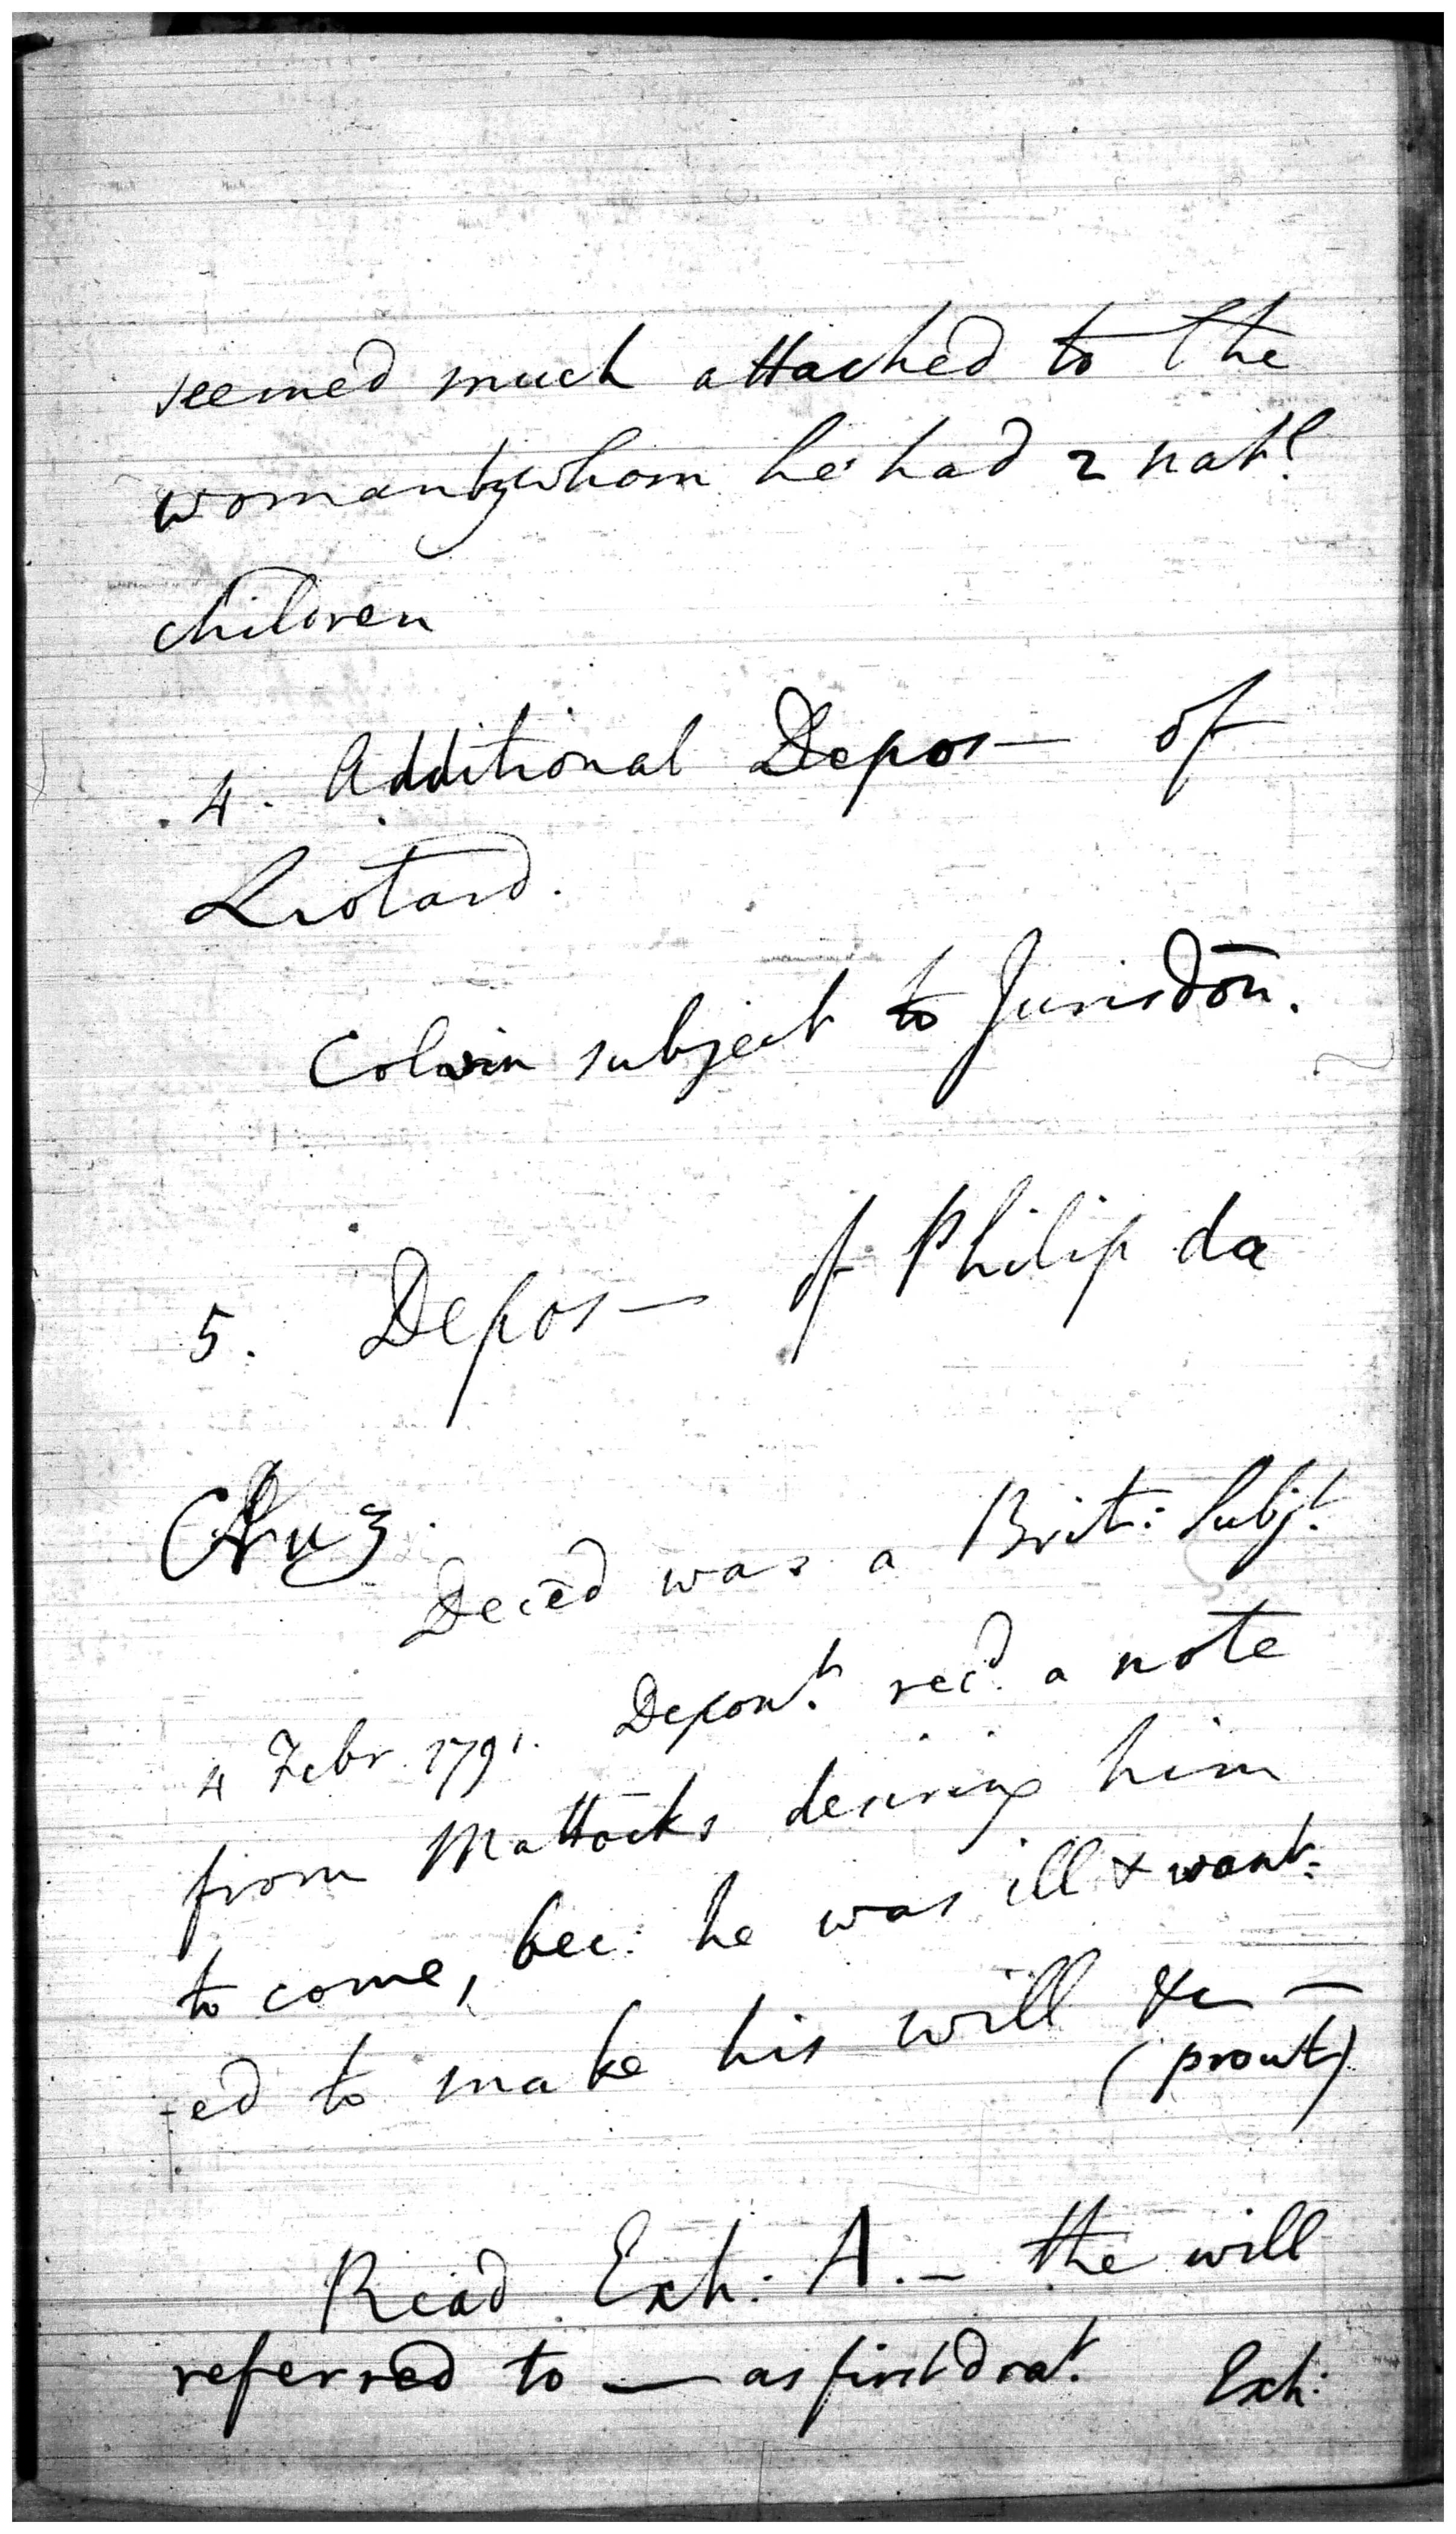 seemed much attached to the
woman by whom he had 2 nat.l
children
4. Additional Depos— of
Liotard.
Colvin subject to Jurisdōn.
5. Depos— of Philip da
Cruz.
Decēd was a Brit: Subj.t
4 Febr. 1791. Depon.t rec.d a note
from Mattocks desiring him
to come, bec: he was ill & want:
-ed to make his will &c —
(prout)
Read Exh: A. — the will
referred to — as first dra.t Exh: